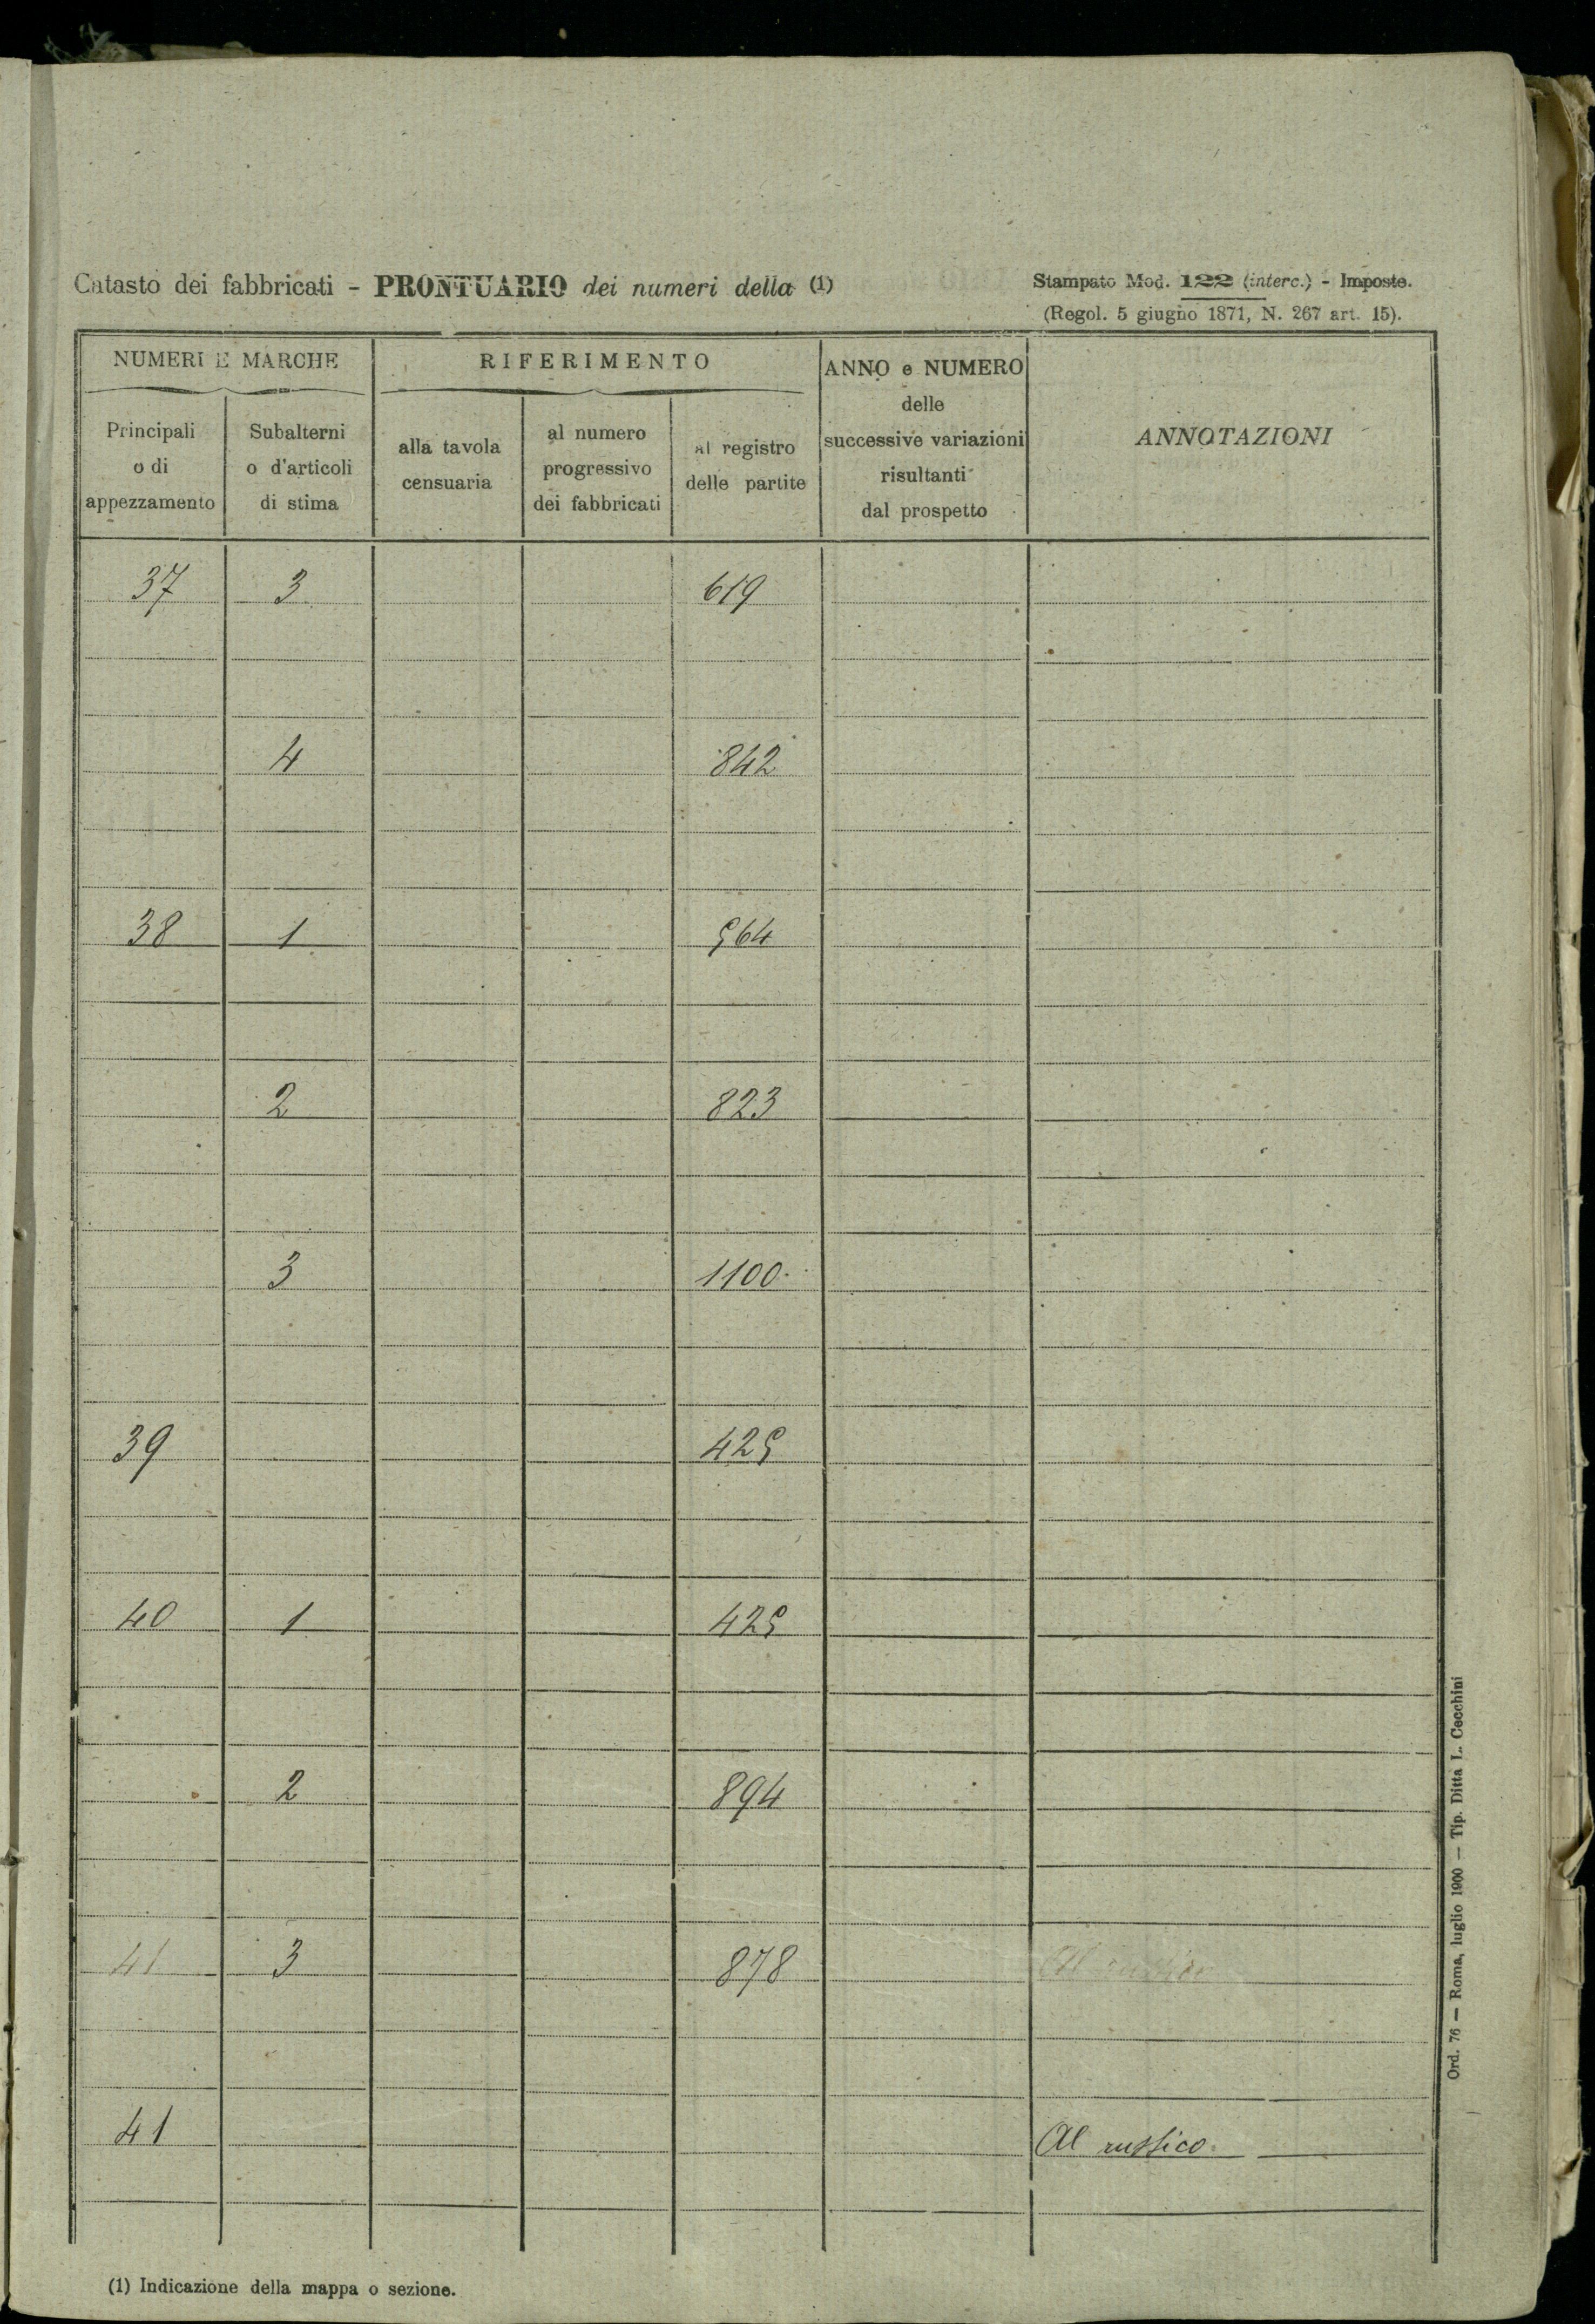 Catasto dei fabbricati - PRONTUARIO dei numeri della (1)
Stampato Mod. 122 (interc.) - Imposte.
(Regol. 5 giugno 1871, N. 267 art. 15).
NUMERI E MARCHE
RIFERIMENTO
ANNO e NUMERO
delle
successive variazioni
risultanti
dal prospetto
ANNOTAZIONI
Principali
o di
appezzamento
Subalterni
o d'articoli
di stima
alla tavola
censuaria
al numero
progressivo
dei fabbricati
al registro
delle partite
37 3 619
4 842
38 1 564
2 823
3 1100
39 425
40 1 425
2 894
41 3 878 Al rustico
41 Al rustico
(1) Indicazione della mappa o sezione.
Ord. 76 — Roma, luglio 1900 — Tip. Ditta L. Cecchini